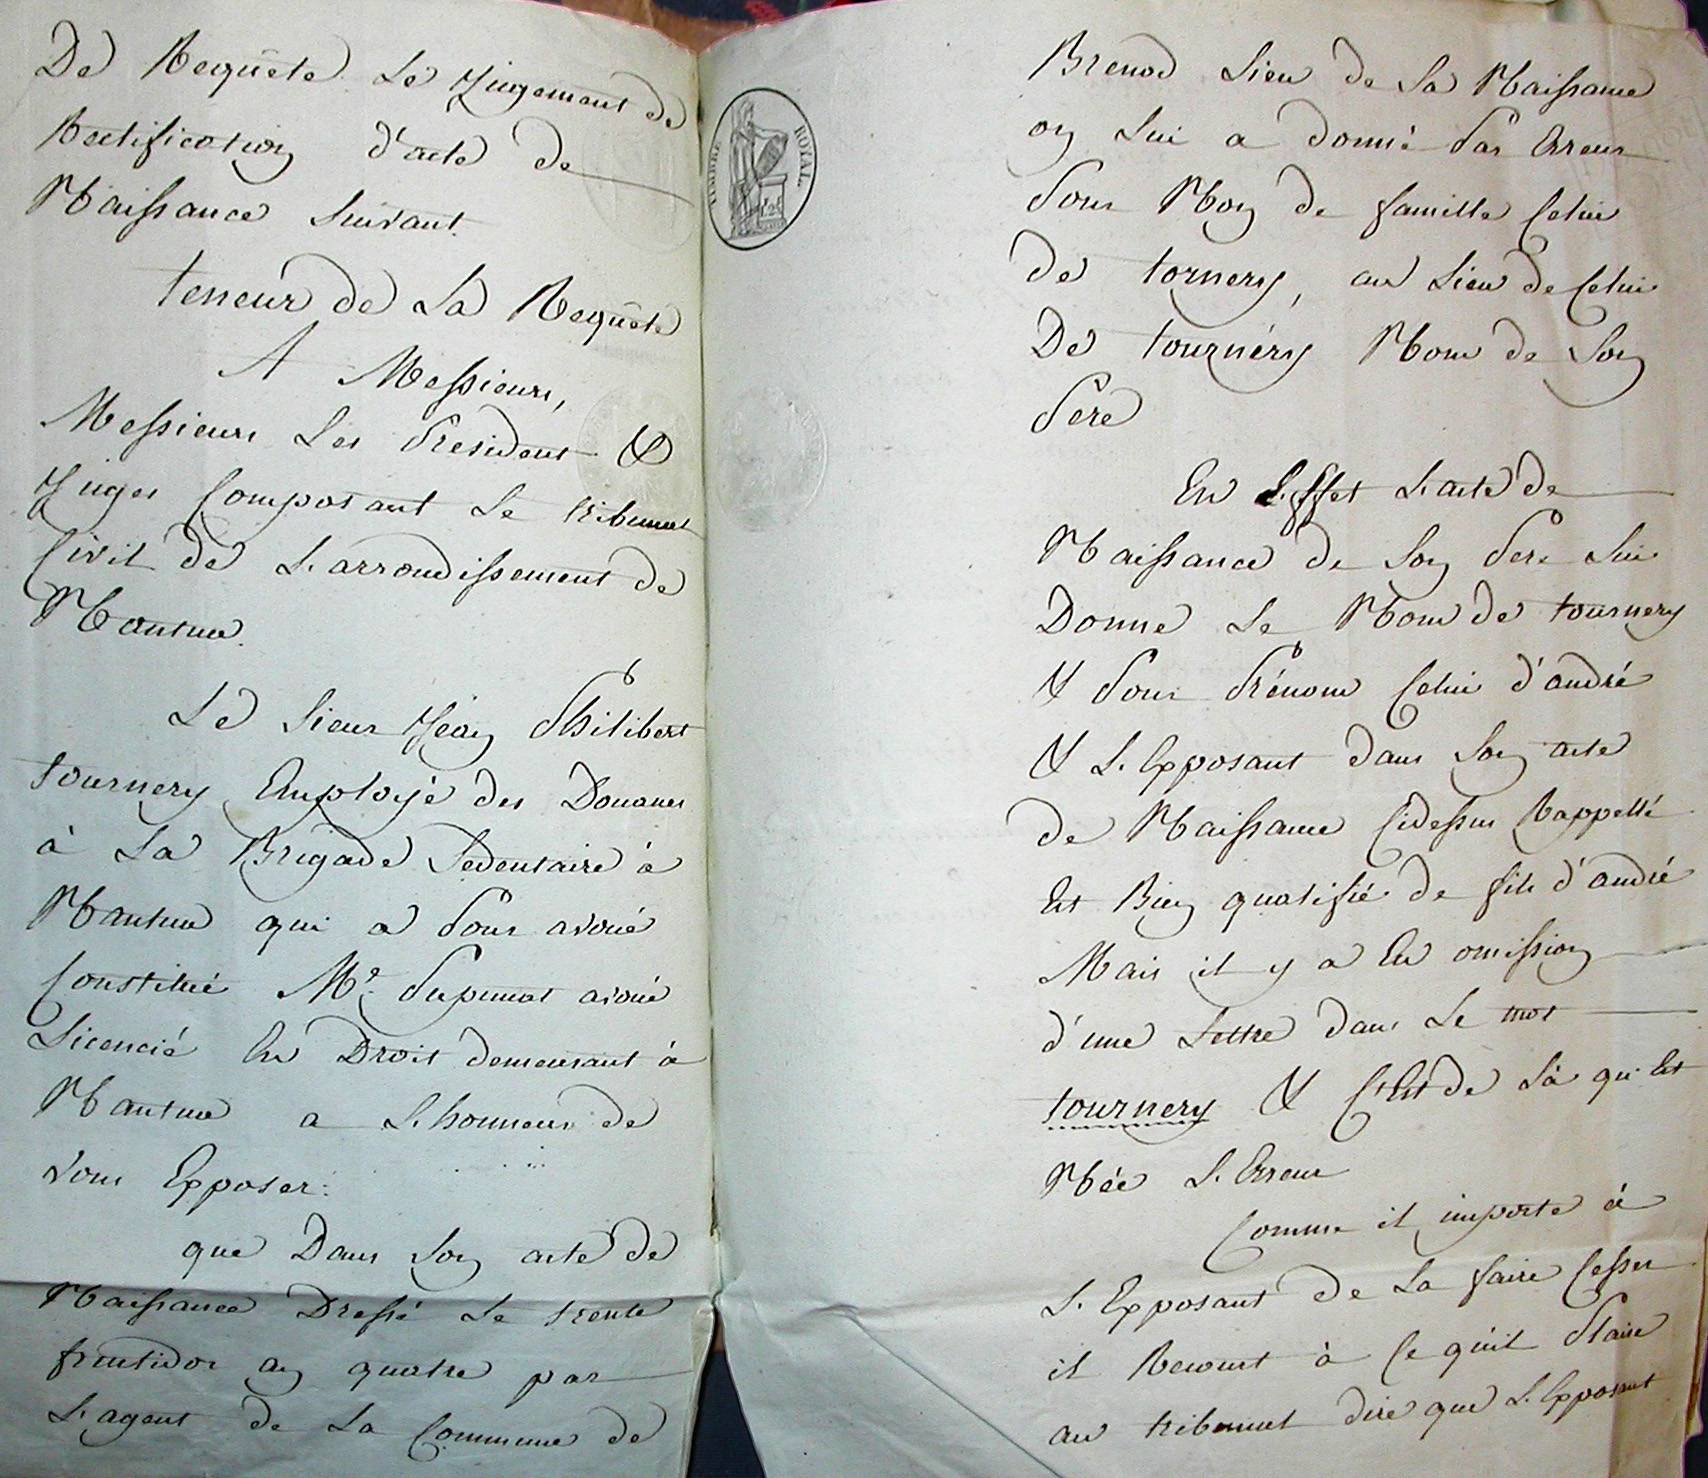 De Requête Le Jugement de
Rectification d'acte de
Naissance Suivant.
teneur de La Requête
A Messieurs,
Messieurs Les President &
Juges Composant Le tribunal
Civil de L'arrondissement de
Nantua.
Le Sieur Jean Philibert
tournery Employé des Douanes
à La Brigade Sedentaire à
Nantua qui a Pour avoué
Constitué Me. avoué
Licencié En Droit demeurant à
Nantua a L'honneur de
vous Exposer:
que Dans Son acte de
Naissance Dressé Le trente
fructidor an quatre par
L'agent de La Commune de
TIMBRE ROYAL
Brenod Lieu de Sa Naissance
on Lui a donné Par Erreur
Pour Nom de famille Celui
de tornery, au Lieu de Celui
De tournery Nom de Son
Pere
En Effet L'acte de
Naissance de Son Pere Lui
Donne Le Nom de tournery
& Pour Prénom Celui d'andré
& L'Exposant dans Son acte
de Naissance Cidessus Rappellé
Est Bien qualifié de fils d'andré
Mais il y a Eu omission
d'une Lettre dans Le mot
tournery & C'Est de Là qu'Est
Née L'Erreur
Comme il importe à
L'Exposant de La faire Cesser
il Recourt à Ce qu'il Plaise
au tribunal dire que L'Exposant